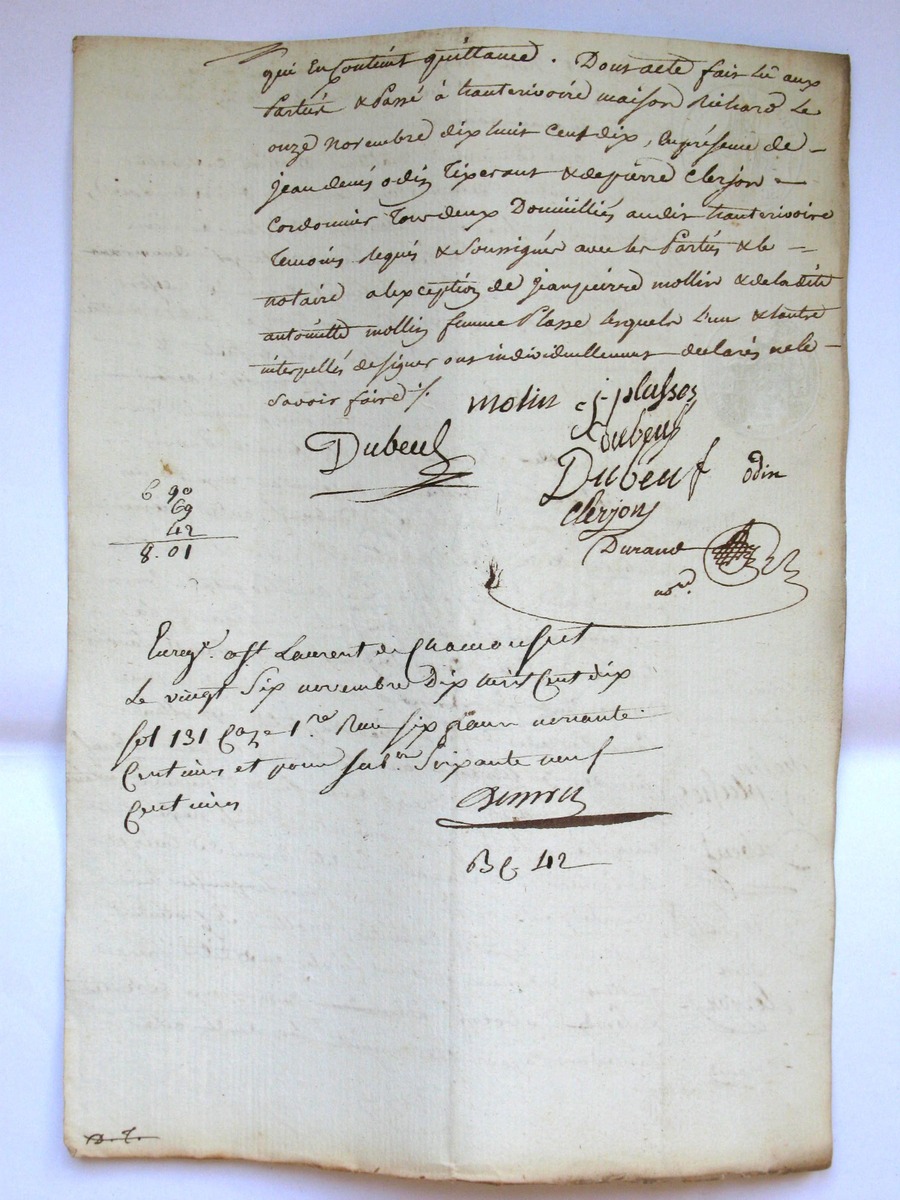 qui En Contient quittance. Dont acte fait lû aux
Parties & Passé à hauterivoire maison Richard Le
onze novembre dix huit cent dix, En présence de –
jean denis odin Tixerant & de pierre Clerjon –
Cordonnier tous deux Domiciliés audit hauterivoire
Temoins requis & Soussignés avec les Parties & le –
notaire a lexception de jean pierre mollin & de la dite
antoinette mollin femme Plasse lesquels l'un & lautre
interpellés de signer ont individuellement declarés ne le –
Savoir faire ./.
molin
Dubeuf
Dubeuf
Dubeuf odin
Clerjon
Durand
no.re
6 90
69
42
8.01
Enreg.é à St Laurent de Chamousset
Le vingt Six novembre Dix huit Cent dix
fol 131 Caze 1.re Reçu six francs nonante
Centimes et pour sub.on Soixante neuf
Centimes
42